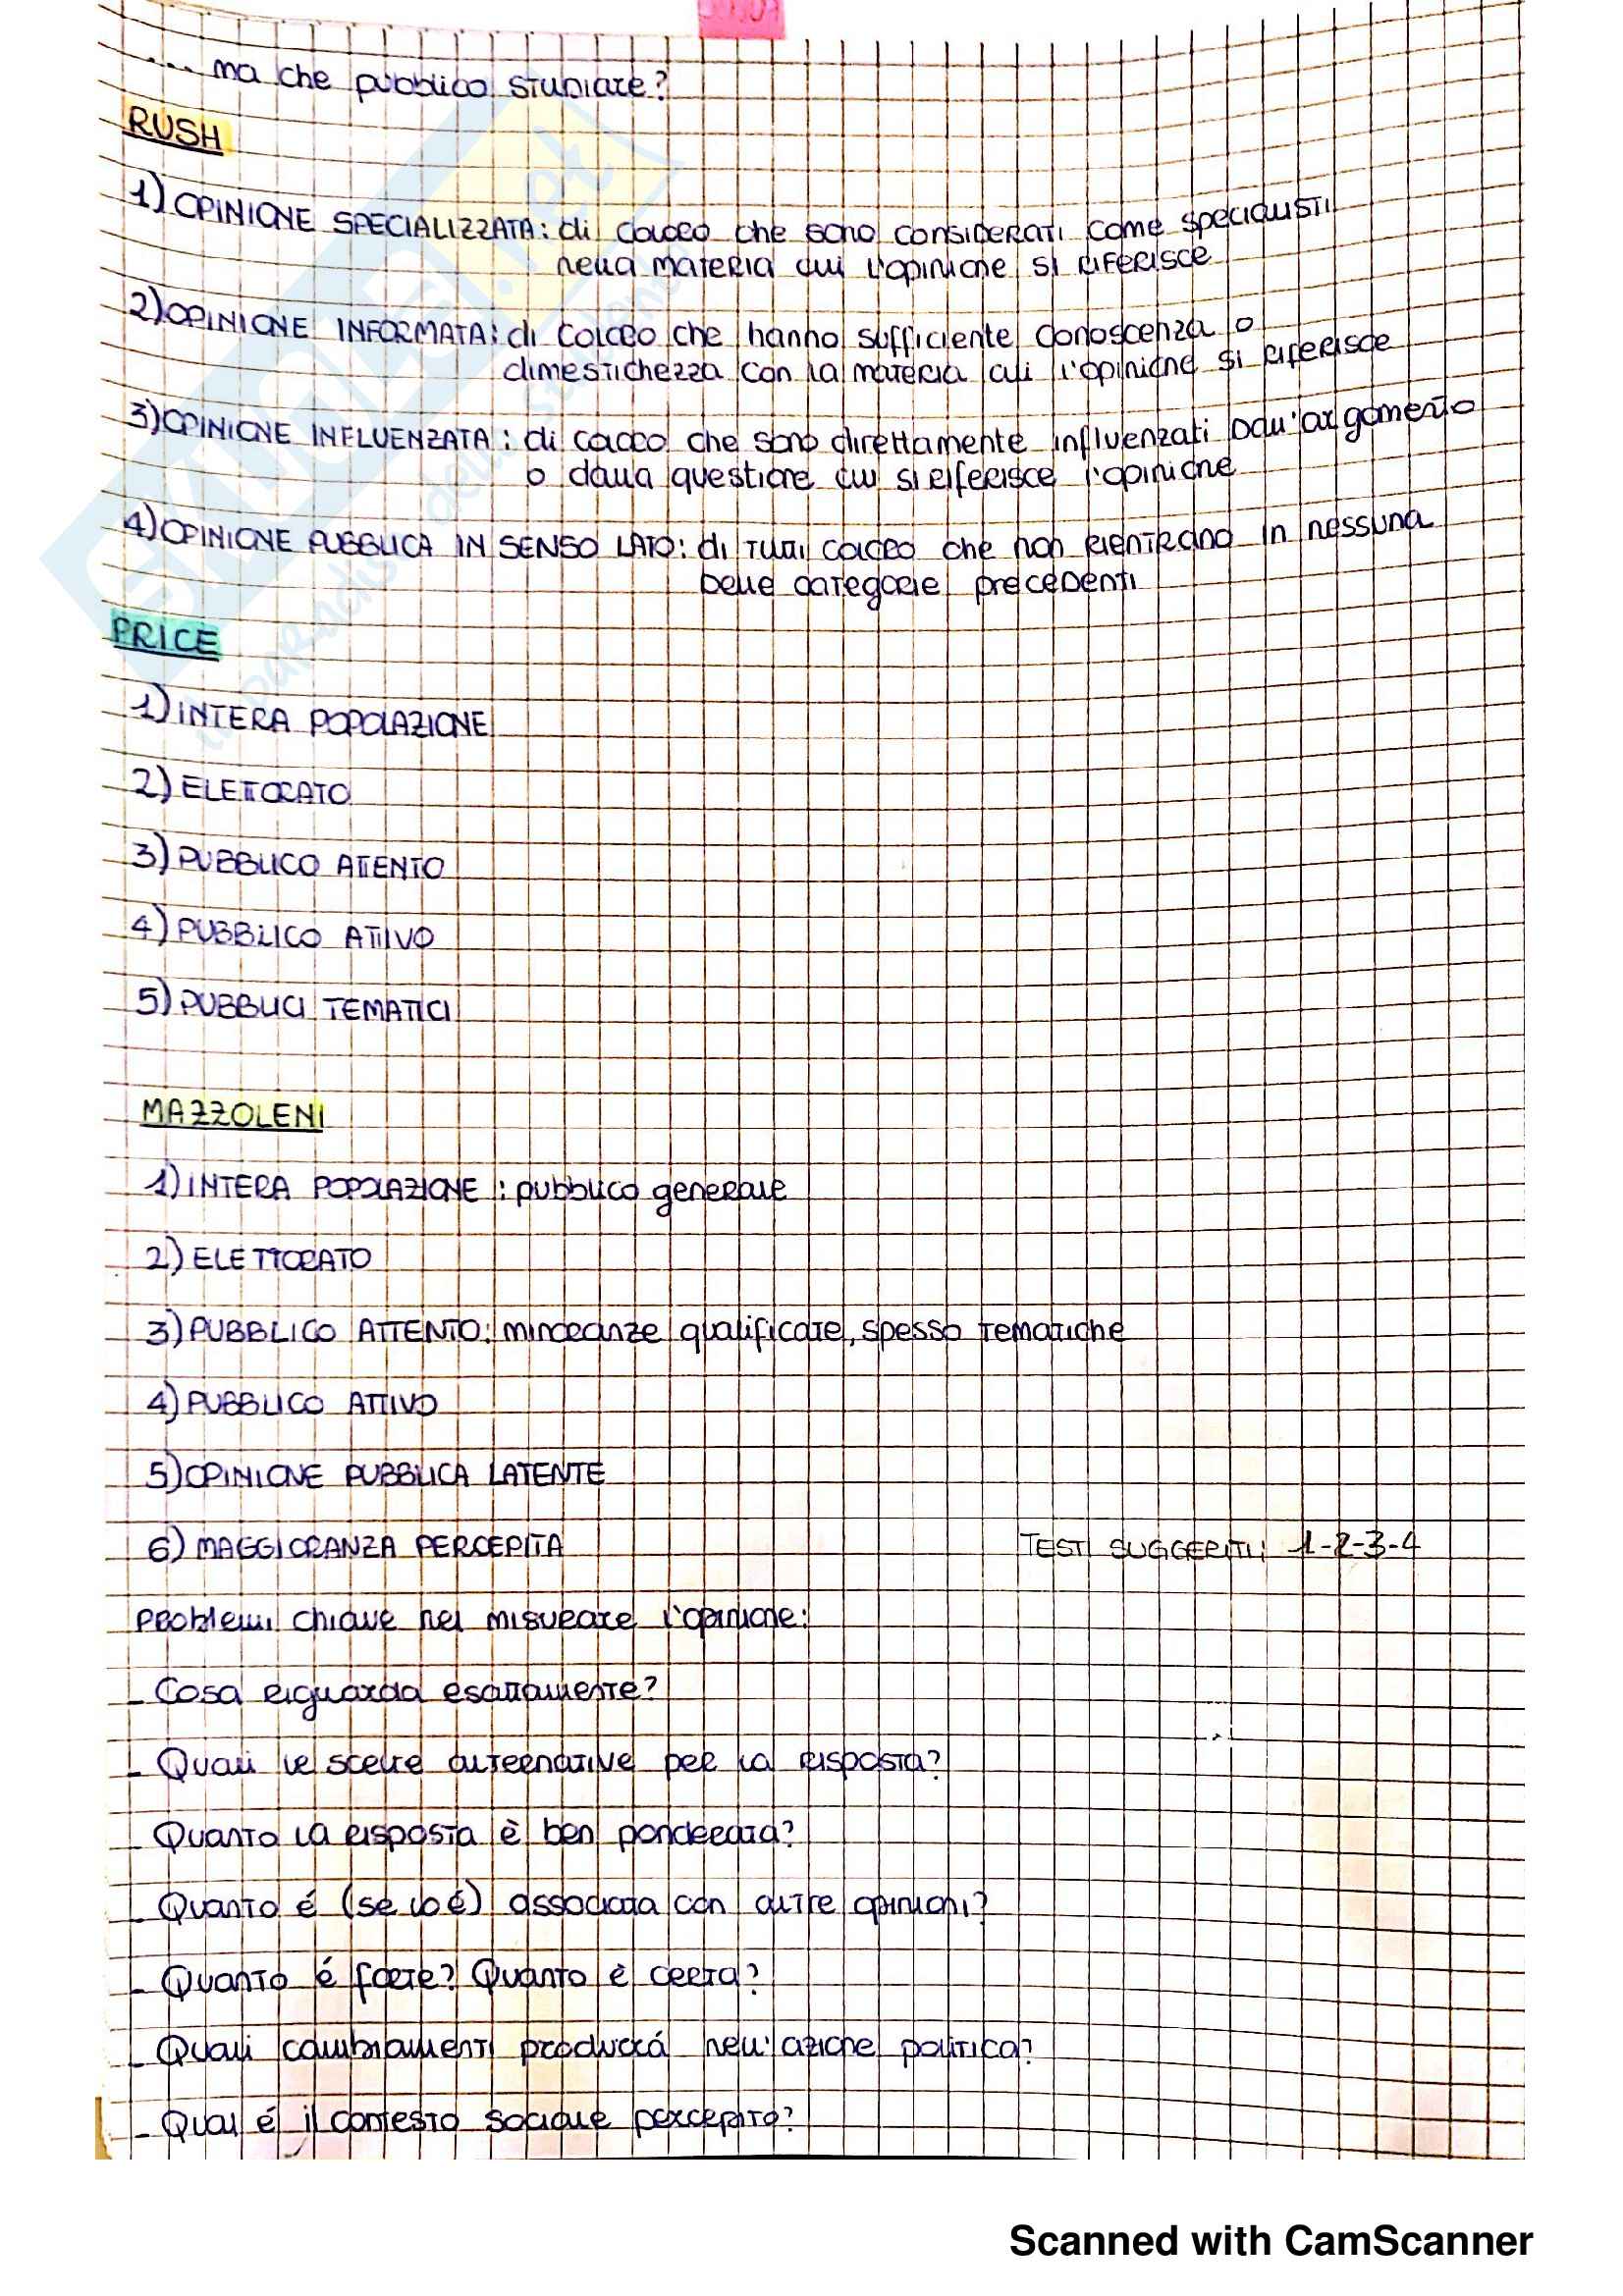 ... ma che pubblico studiare?
RUSH
1) OPINIONE SPECIALIZZATA: di coloro che sono considerati come specialisti
nella materia cui l'opinione si riferisce
2) OPINIONE INFORMATA: di coloro che hanno sufficiente conoscenza o
dimestichezza con la materia cui l'opinione si riferisce
3) OPINIONE INFLUENZATA: di coloro che sono direttamente influenzati dall'argomento
o dalla questione cui si riferisce l'opinione
4) OPINIONE PUBBLICA IN SENSO LATO: di tutti coloro che non rientrano in nessuna
delle categorie precedenti
PRICE
1) INTERA POPOLAZIONE
2) ELETTORATO
3) PUBBLICO ATTENTO
4) PUBBLICO ATTIVO
5) PUBBLICI TEMATICI
MAZZOLENI
1) INTERA POPOLAZIONE: pubblico generale
2) ELETTORATO
3) PUBBLICO ATTENTO: minoranze qualificate, spesso tematiche
4) PUBBLICO ATTIVO
5) OPINIONE PUBBLICA LATENTE
6) MAGGIORANZA PERCEPITA
TESTI SUGGERITI: 1-2-3-4
Problemi chiave nel misurare l'opinione:
- Cosa riguarda esattamente?
- Quali le scelte alternative per la risposta?
- Quanto la risposta è ben ponderata?
- Quanto é (se lo é) associata con altre opinioni?
- Quanto é forte? Quanto è certa?
- Quali cambiamenti produrrá nell'azione politica?
- Qual é il contesto sociale percepito?
Scanned with CamScanner